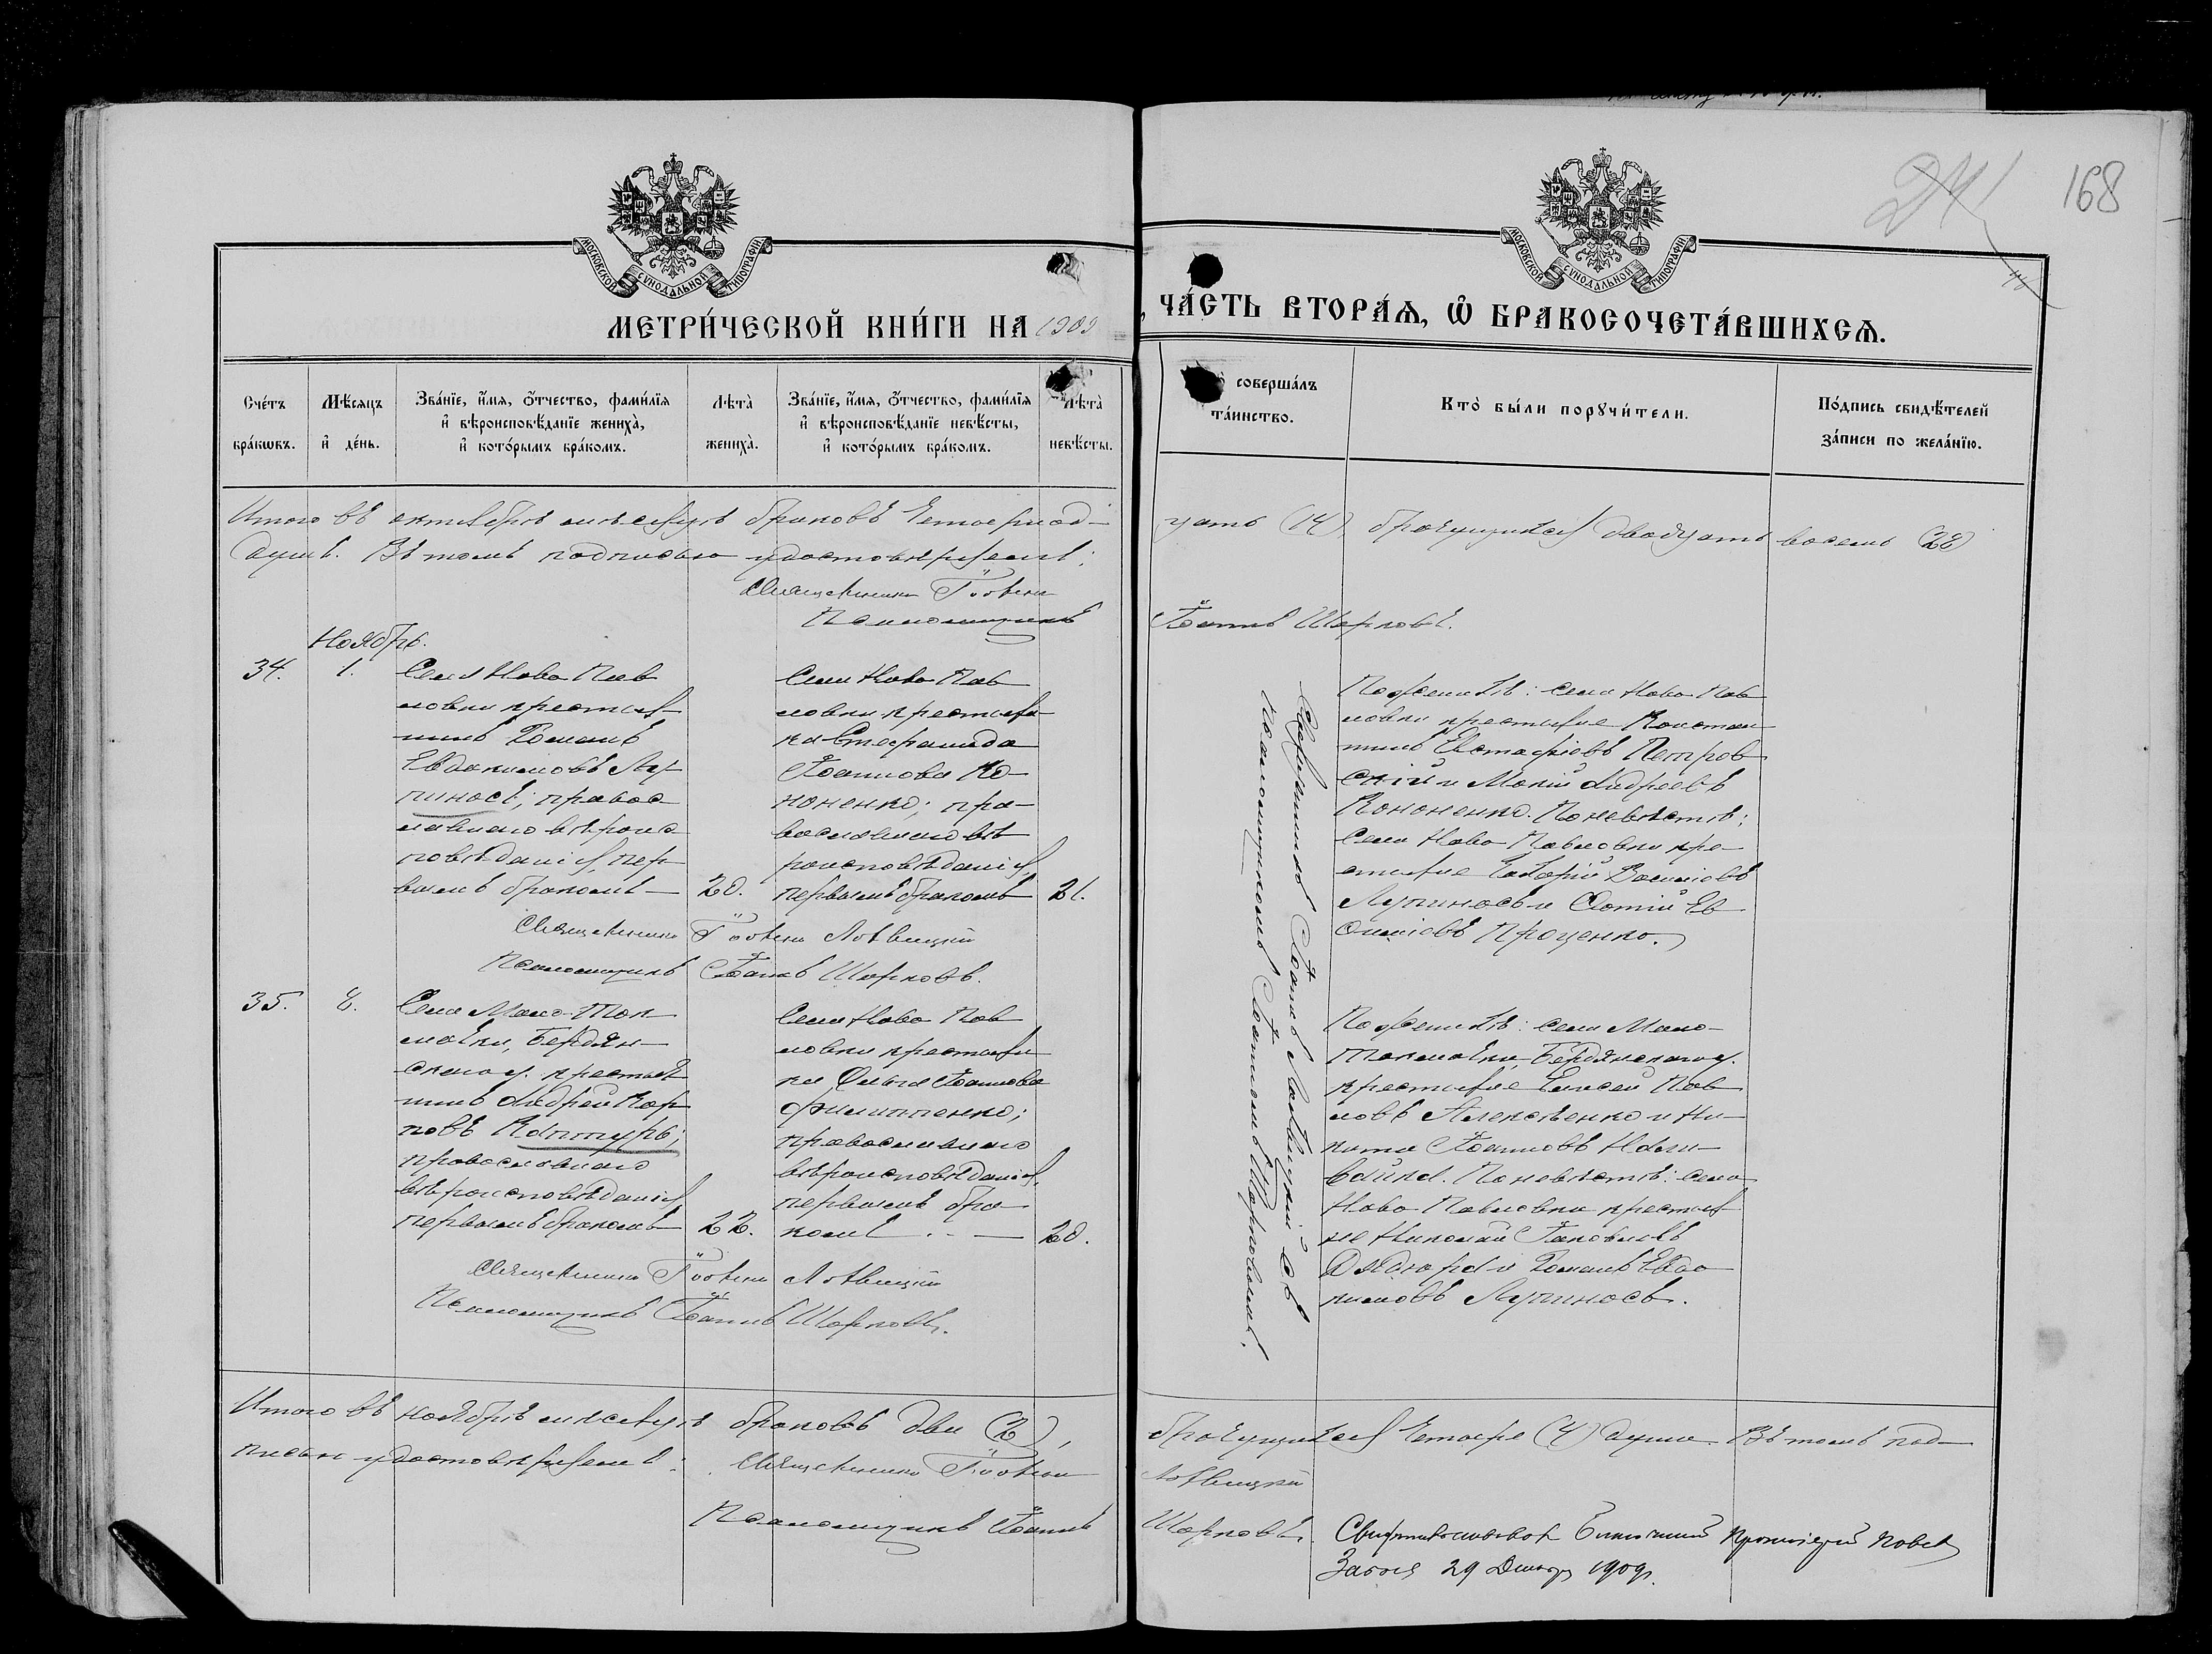 168
МОСКОВСКОЙ СѴНОДАЛЬНОЙ ТИПОГРАФІИ
МОСКОВСКОЙ СѴНОДАЛЬНОЙ ТИПОГРАФІИ
МЕТРИ́ЧЕСКОЙ КНИ́ГИ НА 1909
, ЧА́СТЬ ВТОРА́Ѧ, Ѽ БРАКОСОЧЕТА́ВШИХСѦ.
Сче́тъ бра́кѡвъ.
Мѣ́сяцъ и҆ де́нь.
Зва́нїе, и҆́мя, ѻ҆́тчество, фами́лїя
и҆ вѣроисповѣ́данїе жениха̀,
и҆ кото́рымъ бра́комъ.
Лѣта̀ жениха̀.
Зва́нїе, и҆́мя, ѻ҆́тчество, фами́лїя
и҆ вѣроисповѣ́данїе невѣ́сты,
и҆ кото́рымъ бра́комъ.
Лѣта̀ невѣ́сты.
соверша́лъ
та́инство.
Кто̀ бы́ли порꙋчи́тели.
По́дпись свидѣ́телей
за́писи по жела́нїю.
Итого въ октябрѣ мѣсяцѣ браковъ четырнад-
цать (14), брачущихся двадцать восемь (28)
душъ. Въ томъ подписью удостовѣряемъ:
Священникъ
Псаломщикъ
Іоаннъ Шарковъ.
Ноябрь.
34.
1.
Села Ново Пав
ловки крестья-
нинъ Романъ
Евдокимовъ Лу-
пиносъ; правос-
лавнаго вѣроис
повѣданія, пер-
вымъ бракомъ
20.
Села Ново Пав
ловки крестьян-
ка Стефанида
Іоаннова Ко-
ноненко; пра-
вославнаго вѣ
роисповѣданія,
первымъ бракомъ
21.
Священникъ
Псаломщикъ Іоаннъ Шарковъ.
По женихѣ: села Ново Пав
ловки крестьяне Констан-
тинъ Евстафіевъ Петров
скій и Мокій Андреевъ
Кононенко. По невѣстѣ:
Села Ново Павловки кре-
стьяне Василіевъ
Лупиносъ и Фотій Ев
ѳиміевъ Проценко.
псаломщикомъ Іоанномъ Шарковымъ.
35.
8.
Села Мало-Ток
мачки, Бердян-
скаго у. крестья
нинъ Андрей Кар
повъ Коптуръ;
православнаго
вѣроисповѣданія,
первымъ бракомъ
22.
Села Ново Пав
ловки крестьян
ка Ольга Іоаннова
Филиппенко;
православнаго
вѣроисповѣданія,
первымъ бра
комъ
20.
Священникъ
Псаломщикъ Іоаннъ Шарковъ.
По женихѣ: села Мало-
Токмачки, Бердянскаго у.
крестьяне Елисей Пав
ловъ Алексѣенко и Ни-
кита Іоанновъ Нали-
вайко. По невѣстѣ: села
Ново Павловки крестья
не Николай Іаковлевъ
и Романъ Евдо
кимовъ Лупиносъ.
Итого въ ноябрѣ мѣсяцѣ браковъ два (2),
брачущихся четыре (4) души. Въ томъ под-
писью удостовѣряемъ:
Священникъ
Псаломщикъ Іоаннъ
Шарковъ.
Благочинный Протоіерей Павелъ
29 1909г.